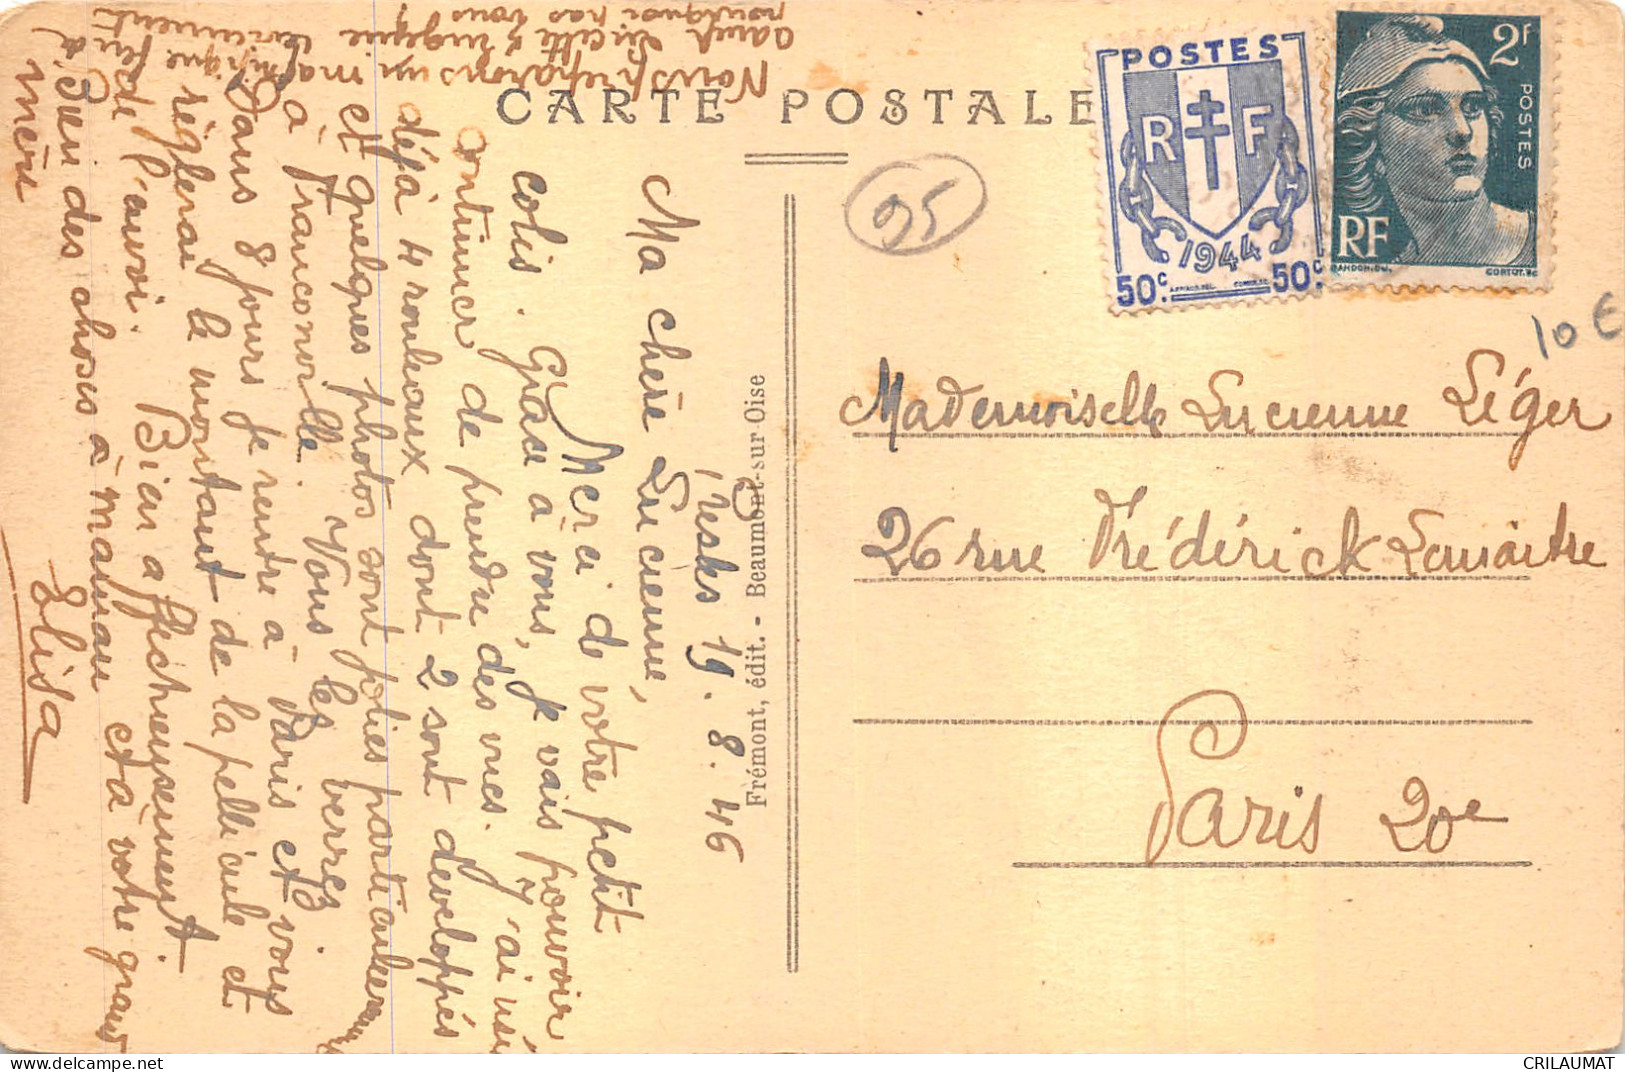 CARTE POSTALE
POSTES
R F
1944
50c. 50c.
2F
POSTES
RF
GANDON.DEL.
CORTOT.SC
95
10 €
Presles 19.8.46
Ma chère Lucienne,
Merci de votre petit
colis. Grâce à vous, je vais pouvoir
continuer de prendre des vues. J'ai usé
déjà 4 rouleaux dont 2 sont développés
et quelques photos sont jolies particulièrem
à Franconville. Vous les verrez
Dans 8 jours je rentre à Paris et vous
réglerai le montant de la pellicule et
de l'envoi. Bien affectueusement
Bien des choses à maman et à votre grand
mère
Elisa
Nous préparons un magnifique
pourquoi pas vous?
Frémont, édit. - Beaumont-sur-Oise
Mademoiselle Lucienne Léger
26 rue Frédérick Lemaître
Paris 20e
CRILAUMAT